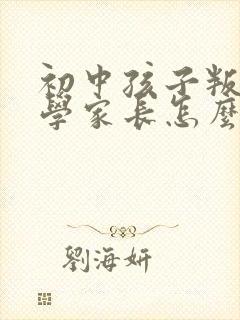 初中孩子叛
學家長怎麼
劉海妍